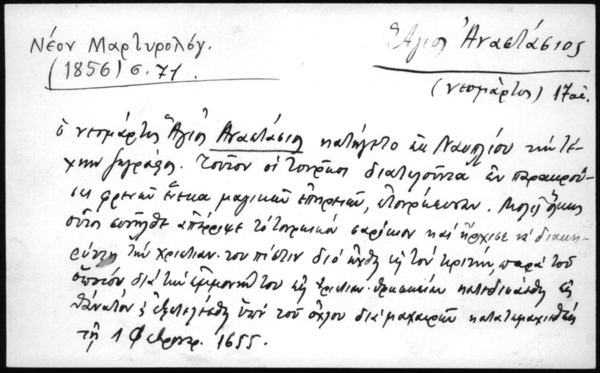 Νέον Μαρτυρολόγ.
(1856) σ. 71.
Ἅγιος Ἀναστάσιος
(νεομάρτυς) 17 αἰ.
ὁ νεομάρτυς Ἅγιος Ἀναστάσιος κατήγετο ἐκ Ναυπλίου τὴν τέ-
χνην ζωγράφος. Τοῦτον οἱ τοῦρκοι διατελοῦντα ἐν παρακρού-
σει φρενῶν ἕνεκα μαγικῶν ἐπηρειῶν, ἐτούρκευσαν. Μόλις ὅμως
οὗτος συνῆλθε ἀπέρριψε τὸ τουρκικὸ σαρίκιον καὶ ἤρχισε νὰ διακη-
ρύττῃ τὴν χριστιαν. του πίστιν διὸ ἤχθη εἰς τὸν κριτὴν, παρὰ τοῦ
ὁποίου διὰ τὴν ἐμμονήν του εἰς χριστιαν. θρησκείαν κατεδικάσθη εἰς
θάνατον ἐξετελέσθη ὑπὸ τοῦ ὄχλου διὰ μαχαιρῶν κατατεμαχισθεὶς
τῇ 1 Φεβρουαρ. 1655.